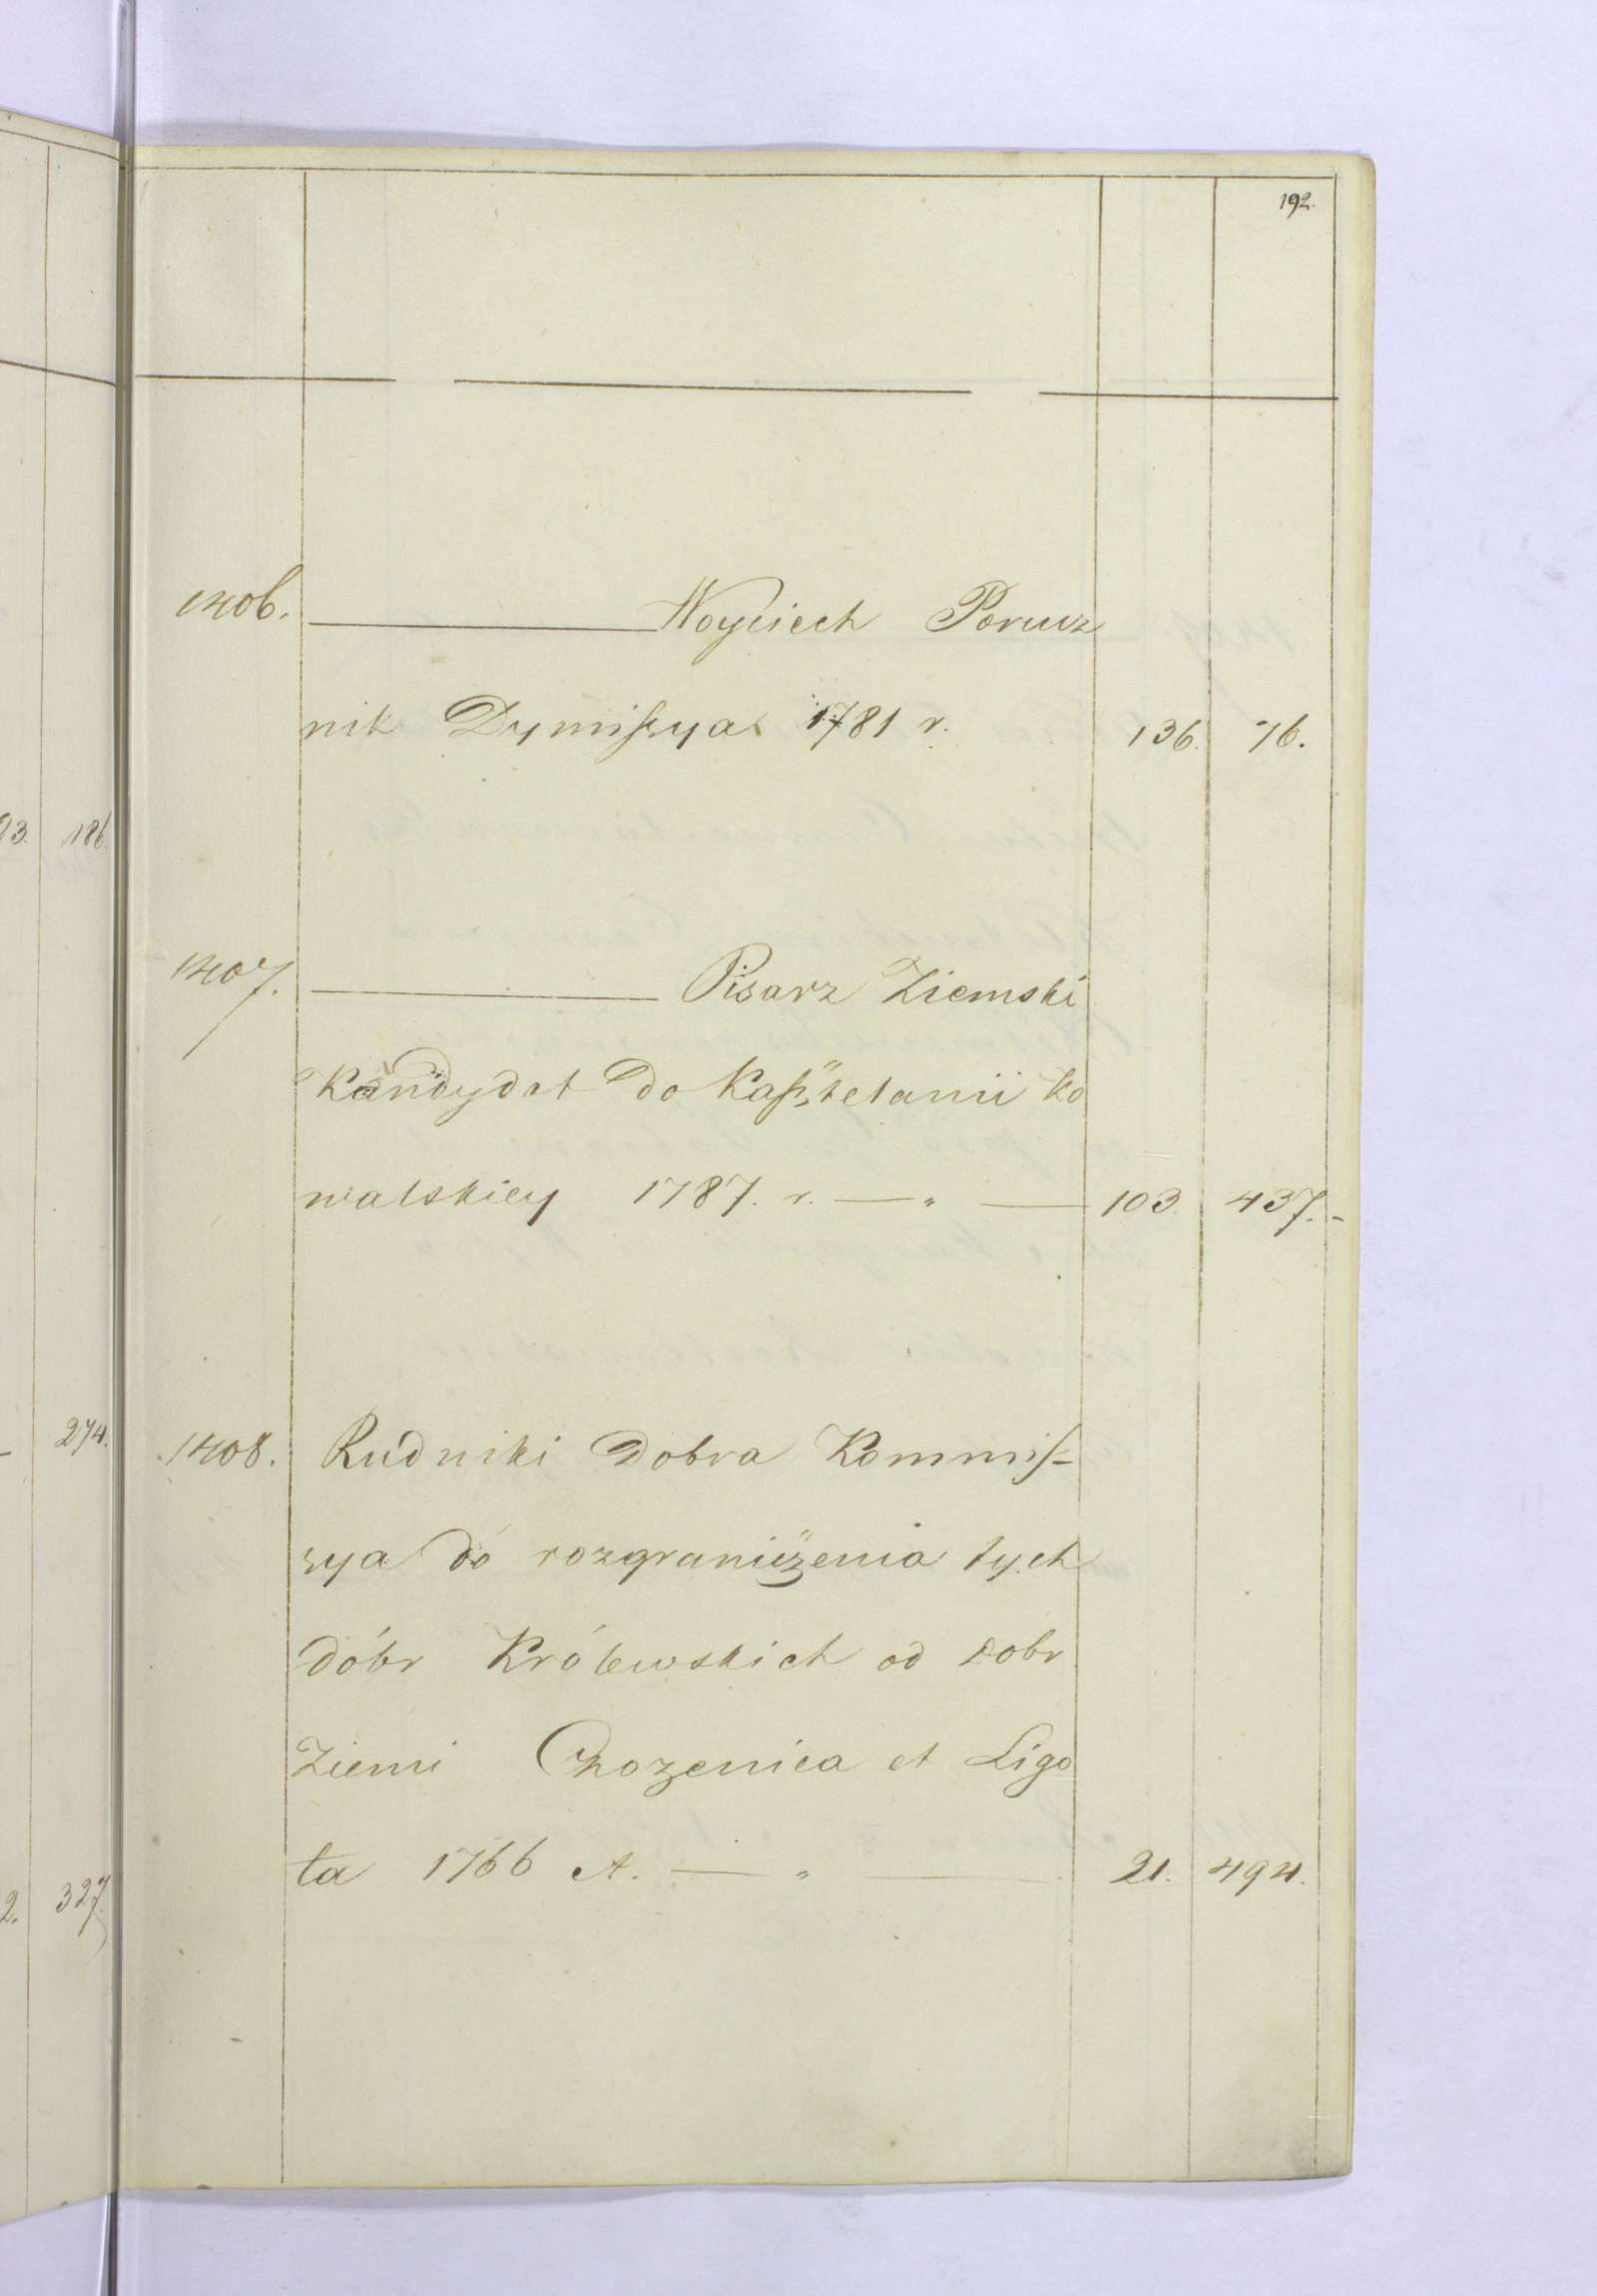 192.
1406. ——— Woyciech Porucz
nik Dymissya 1781 r. 136. 76.
1407. ——— Pisarz Ziemski
Kandydat do Kasztelanii Ko
walskiey 1787. r. — " — 103 437.-
1408. Rudniki Dobra Kommis-
sya do rozgraniczenia tych
dóbr Królewskich od dobr
Ziemi et Ligo
ta 1766 A. — " — 21. 494.
93. 186.
274.
2. 327.